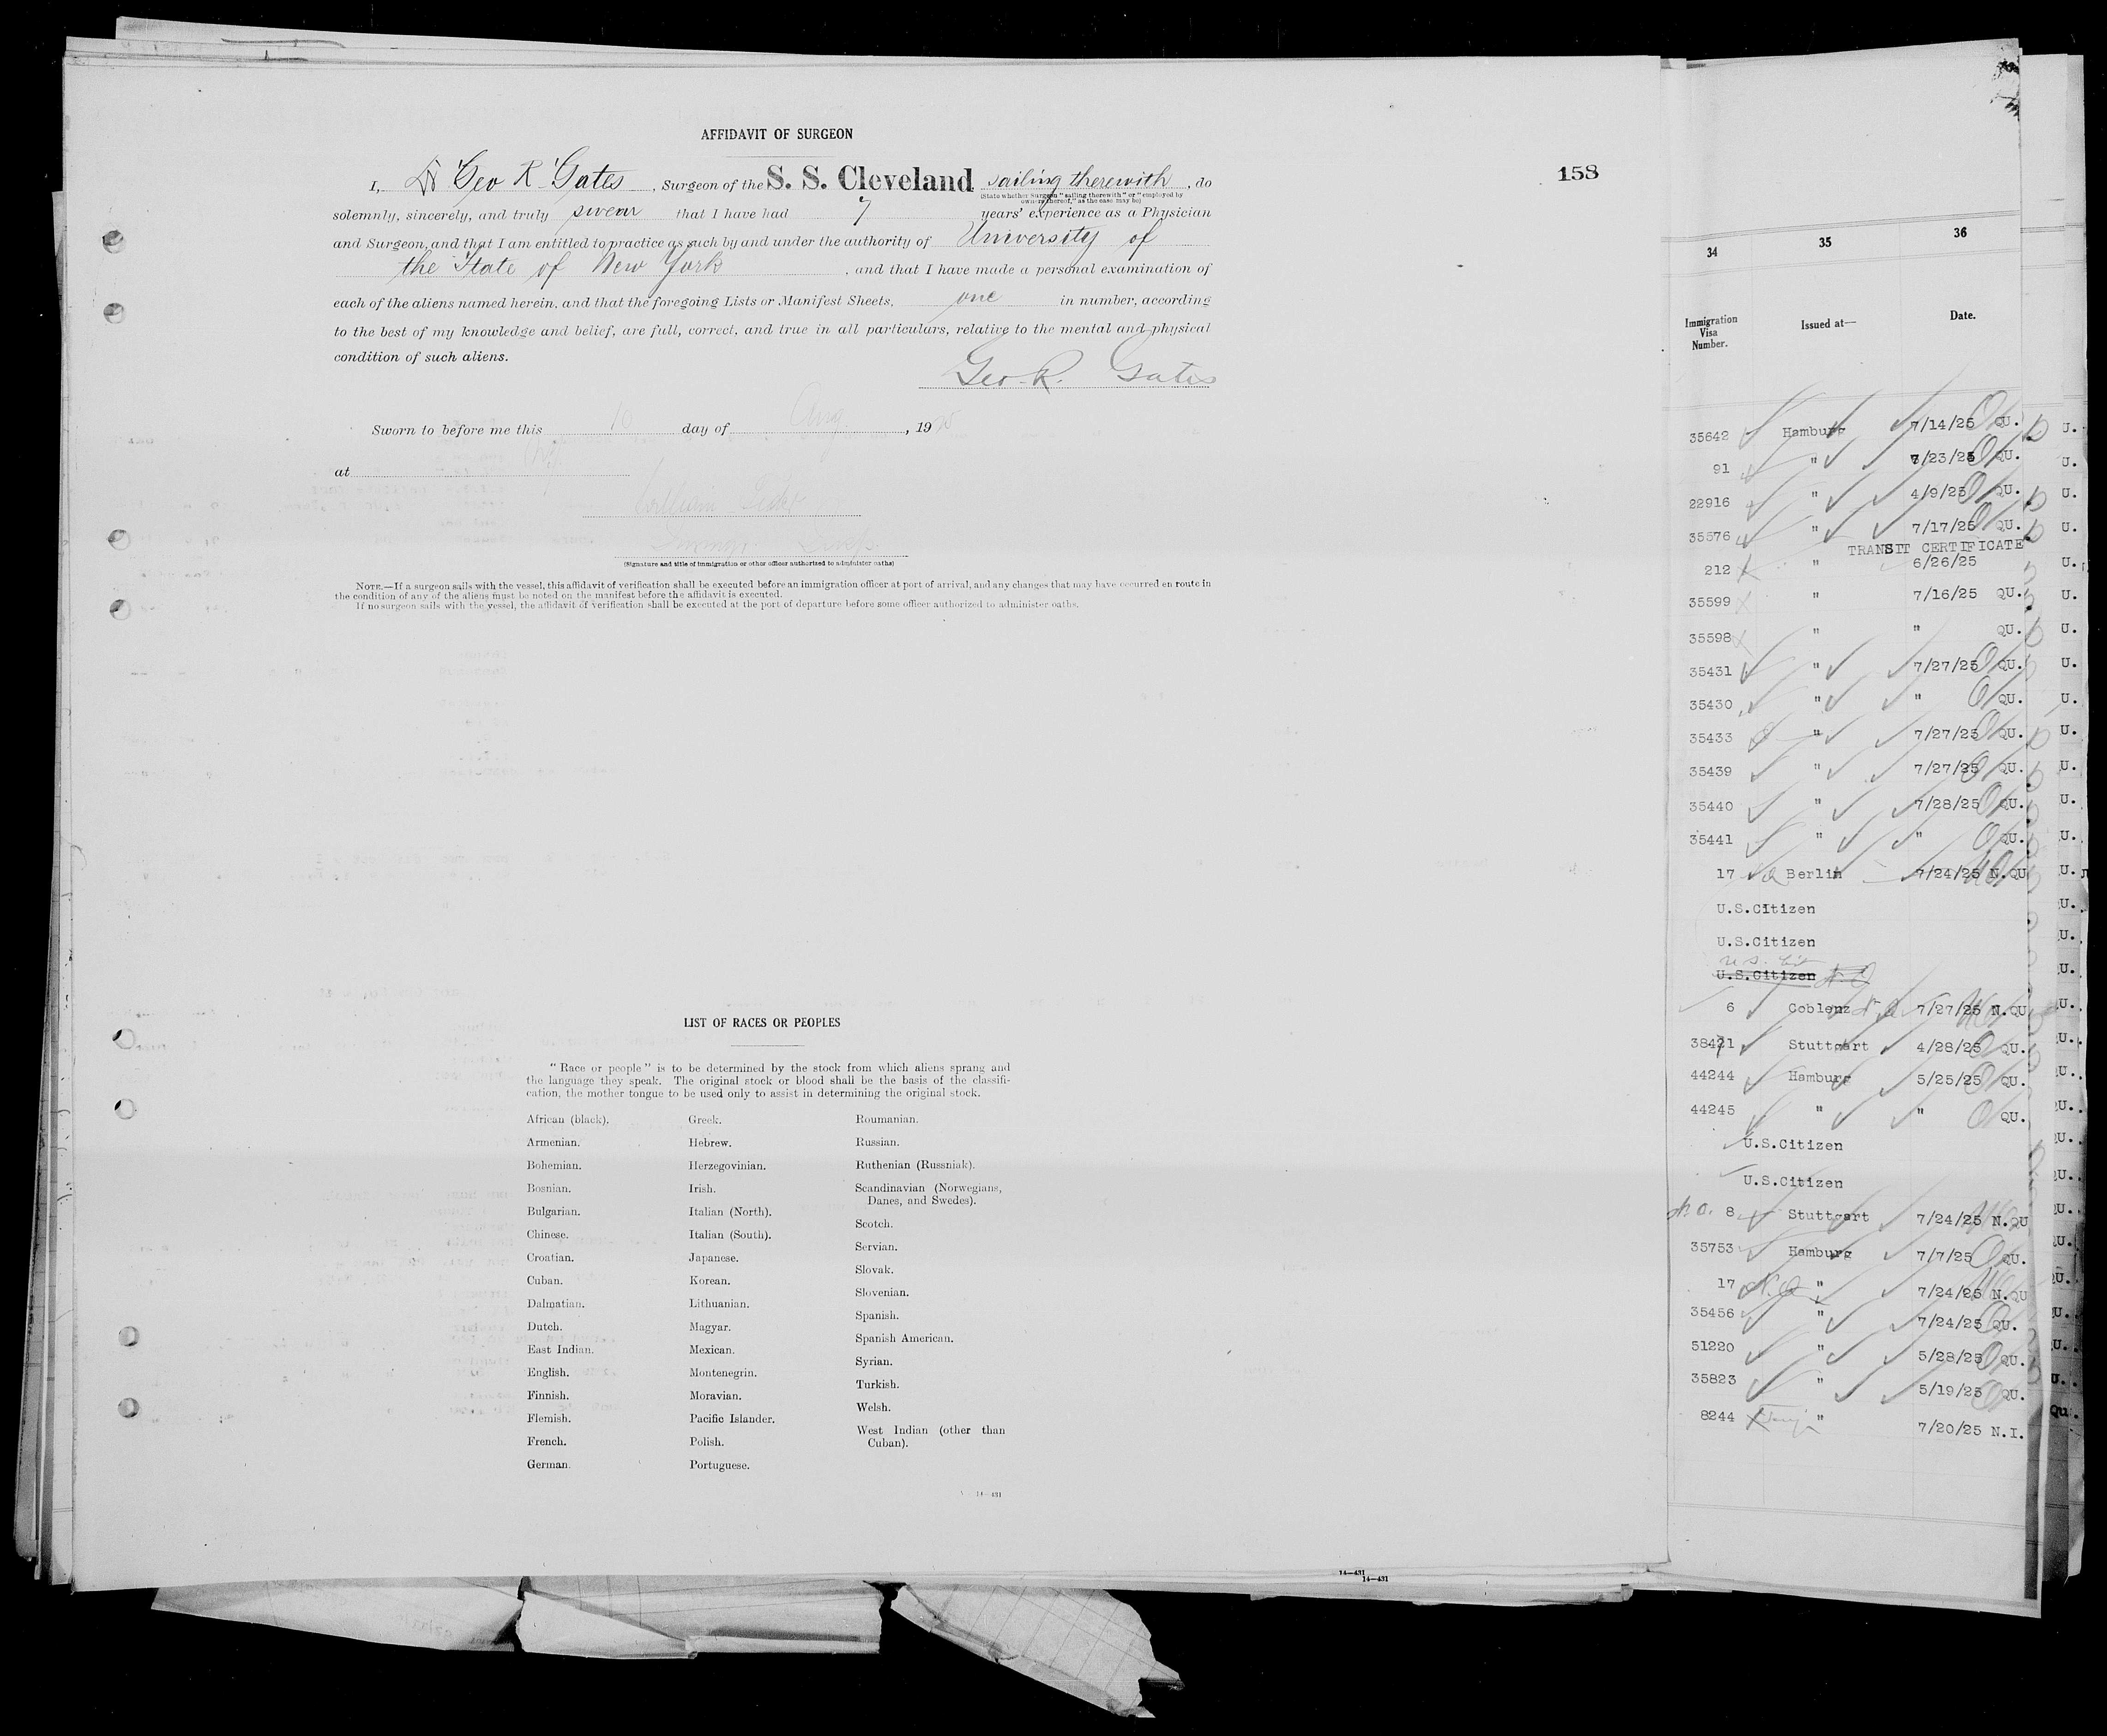 AFFIDAVIT OF SURGEON
158
I, Dr Geo R Gates, Surgeon of the S. S. Cleveland sailing therewith, do
(State whether Surgeon "sailing therewith" or "employed by
owners thereof," as the case may be)
solemnly, sincerely, and truly swear that I have had 7 years' experience as a Physician
and Surgeon, and that I am entitled to practice as such by and under the authority of University of
the State of New York, and that I have made a personal examination of
each of the aliens named herein, and that the foregoing Lists or Manifest Sheets, one in number, according
to the best of my knowledge and belief, are full, correct, and true in all particulars, relative to the mental and physical
condition of such aliens.
Geo. R. Gates
Sworn to before me this 10 day of Aug, 19
at
(Signature and title of immigration or other officer authorized to administer oaths)
NOTE.—If a surgeon sails with the vessel, this affidavit of verification shall be executed before an immigration officer at port of arrival, and any changes that may have occurred en route in
the condition of any of the aliens must be noted on the manifest before the affidavit is executed.
If no surgeon sails with the vessel, the affidavit of verification shall be executed at the port of departure before some officer authorized to administer oaths.
LIST OF RACES OR PEOPLES
"Race or people" is to be determined by the stock from which aliens sprang and
the language they speak. The original stock or blood shall be the basis of the classifi-
cation, the mother tongue to be used only to assist in determining the original stock.
African (black).
Armenian.
Bohemian.
Bosnian.
Bulgarian.
Chinese.
Croatian.
Cuban.
Dalmatian.
Dutch.
East Indian.
English.
Finnish.
Flemish.
French.
German.
Greek.
Hebrew.
Herzegovinian.
Irish.
Italian (North).
Italian (South).
Japanese.
Korean.
Lithuanian.
Magyar.
Mexican.
Montenegrin.
Moravian.
Pacific Islander.
Polish.
Portuguese.
Roumanian.
Russian.
Ruthenian (Russniak).
Scandinavian (Norwegians,
Danes, and Swedes).
Scotch.
Servian.
Slovak.
Slovenian.
Spanish.
Spanish American.
Syrian.
Turkish.
Welsh.
West Indian (other than
Cuban).
14—431
14—431
14—431
34 35 36
Immigration
Visa
Number.
Issued at—
Date.
35642 Hamburg 7/14/25 QU. U.
91 " 7/23/25 QU. U.
22916 " 4/9/25 QU. U.
35576 " 7/17/25 QU. U.
TRANSIT CERTIFICATE
212 " 6/26/25 U.
35599 " 7/16/25 QU. U.
35598 " " QU. U.
35431 " 7/27/25 QU. U.
35430 " " QU. U.
35433 " 7/27/25 QU. U.
35439 " 7/27/25 QU. U.
35440 " 7/28/25 QU. U.
35441 " " QU. U.
17 Berlin 7/24/25 N.QU U.
U.S.Citizen U.
U.S.Citizen U.
U.S. Cit
U.S.Citizen U.
6 Coblenz 7/27/25 N.QU U.
38421 Stuttgart 4/28/25 QU. U.
44244 Hamburg 5/25/25 QU. U.
44245 " " QU. QU.
U.S.Citizen QU.
U.S.Citizen QU.
8 Stuttgart 7/24/25 N.QU QU.
35753 Hamburg 7/7/25 QU. QU.
17 N.Q " 7/24/25 N.QU QU.
35456 " 7/24/25 QU. U.
51220 " 5/28/25 QU. U.
35823 " 5/19/25 QU. U.
8244 " 7/20/25 N.I. Qu.